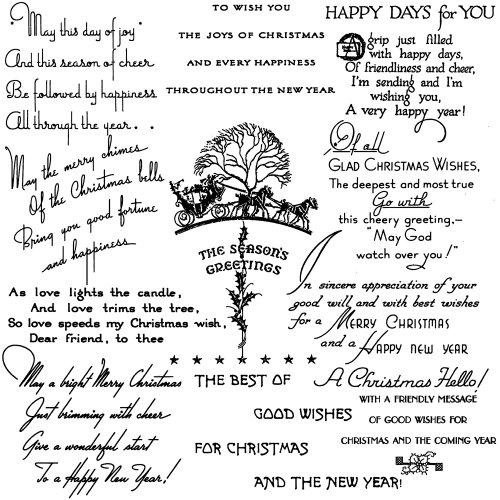 May this day of joy
And this season of cheer
Be followed by happiness
All through the year.
May the merry chimes
Of the Christmas bells
Bring you good fortune
and happiness
TO WISH YOU
THE JOYS OF CHRISTMAS
AND EVERY HAPPINESS
THROUGHOUT THE NEW YEAR
HAPPY DAYS for YOU
A grip just filled
with happy days,
Of friendliness and cheer,
I'm sending and I'm
wishing you,
A very happy year!
Of all
GLAD CHRISTMAS WISHES,
The deepest and most true
Go with
this cheery greeting,—
"May God
watch over you!"
THE SEASON'S
GREETINGS
In sincere appreciation of your
good will and with best wishes
for a MERRY CHRISTMAS
and a HAPPY NEW YEAR
As love lights the candle,
And love trims the tree,
So love speeds my Christmas wish,
Dear friend, to thee
May a bright Merry Christmas
Just brimming with cheer
Give a wonderful start
To a Happy New Year!
THE BEST OF
GOOD WISHES
FOR CHRISTMAS
AND THE NEW YEAR!
A Christmas Hello!
WITH A FRIENDLY MESSAGE
OF GOOD WISHES FOR
CHRISTMAS AND THE COMING YEAR